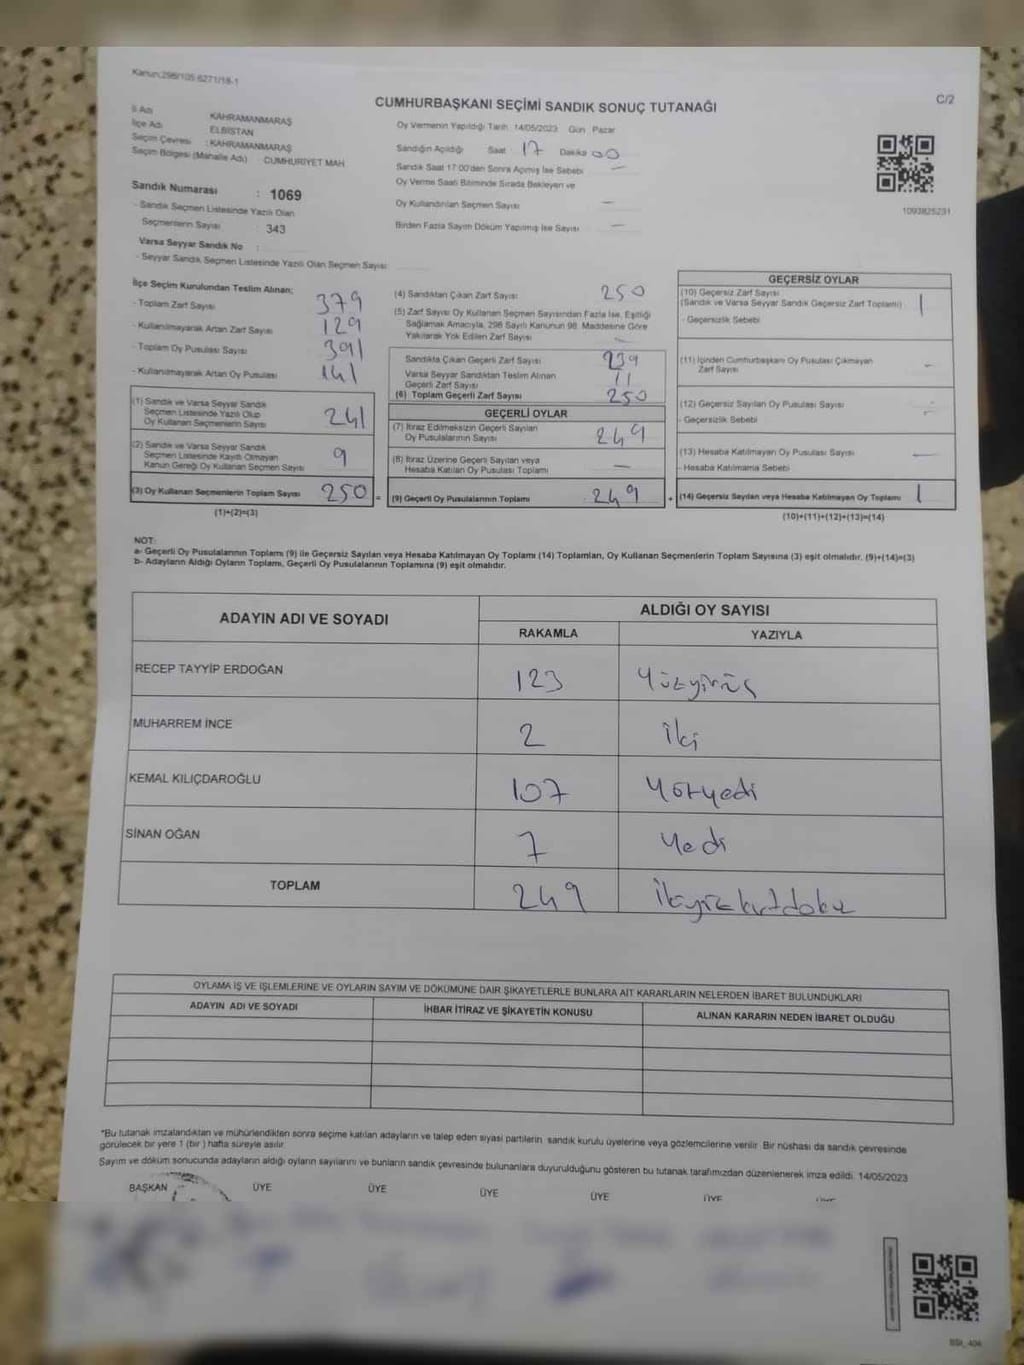 Kanun:298/105 6271/18-1
C/2
CUMHURBAŞKANI SEÇİMİ SANDIK SONUÇ TUTANAĞI
İl Adı KAHRAMANMARAŞ
İlçe Adı ELBİSTAN
Seçim Çevresi : KAHRAMANMARAŞ
Seçim Bölgesi (Mahalle Adı) CUMHURİYET MAH
Sandık Numarası : 1069
- Sandık Seçmen Listesinde Yazılı Olan
Seçmenlerin Sayısı 343
Varsa Seyyar Sandık No :
- Seyyar Sandık Seçmen Listesinde Yazılı Olan Seçmen Sayısı
Oy Vermenin Yapıldığı Tarih: 14/05/2023 Gün Pazar
Sandığın Açıldığı Saat 17 Dakika 00
Sandık Saat 17:00'den Sonra Açımış İse Sebebi —
Oy Verme Saati Bitiminde Sırada Bekleyen ve
Oy Kullandırılan Seçmen Sayısı —
Birden Fazla Sayım Döküm Yapılmış İse Sayısı —
1093825231
İlçe Seçim Kurulundan Teslim Alınan;
- Toplam Zarf Sayısı 379
- Kullanılmayarak Artan Zarf Sayısı 129
- Toplam Oy Pusulası Sayısı 391
- Kullanılmayarak Artan Oy Pusulası 141
(1) Sandık ve Varsa Seyyar Sandık
Seçmen Listesinde Yazılı Olup
Oy Kullanan Seçmenlerin Sayısı 241
(2) Sandık ve Varsa Seyyar Sandık
Seçmen Listesinde Kayıtlı Olmayan
Kanun Gereği Oy Kullanan Seçmen Sayısı 9
(3) Oy Kullanan Seçmenlerin Toplam Sayısı 250 =
(1)+(2)=(3)
(4) Sandıktan Çıkan Zarf Sayısı 250
(5) Zarf Sayısı Oy Kullanan Seçmen Sayısından Fazla İse, Eşitliği
Sağlamak Amacıyla, 298 Sayılı Kanunun 98. Maddesine Göre
Yakılarak Yok Edilen Zarf Sayısı —
Sandıkta Çıkan Geçerli Zarf Sayısı 239
Varsa Seyyar Sandıktan Teslim Alınan
Geçerli Zarf Sayısı 11
(6) Toplam Geçerli Zarf Sayısı 250
GEÇERLİ OYLAR
(7) İtiraz Edilmeksizin Geçerli Sayılan
Oy Pusulalarının Sayısı 249
(8) İtiraz Üzerine Geçerli Sayılan veya
Hesaba Katılan Oy Pusulası Toplamı —
(9) Geçerli Oy Pusulalarının Toplamı 249 +
GEÇERSİZ OYLAR
(10) Geçersiz Zarf Sayısı
(Sandık ve Varsa Seyyar Sandık Geçersiz Zarf Toplamı) 1
- Geçersizlik Sebebi
(11) İçinden Cumhurbaşkanı Oy Pusulası Çıkmayan
Zarf Sayısı —
(12) Geçersiz Sayılan Oy Pusulası Sayısı
- Geçersizlik Sebebi
(13) Hesaba Katılmayan Oy Pusulası Sayısı —
- Hesaba Katılmama Sebebi
(14) Geçersiz Sayılan veya Hesaba Katılmayan Oy Toplamı 1
(10)+(11)+(12)+(13)=(14)
NOT:
a- Geçerli Oy Pusulalarının Toplamı (9) ile Geçersiz Sayılan veya Hesaba Katılmayan Oy Toplamı (14) Toplamları, Oy Kullanan Seçmenlerin Toplam Sayısına (3) eşit olmalıdır. (9)+(14)=(3)
b- Adayların Aldığı Oyların Toplamı, Geçerli Oy Pusulalarının Toplamına (9) eşit olmalıdır.
ADAYIN ADI VE SOYADI ALDIĞI OY SAYISI
RAKAMLA YAZIYLA
RECEP TAYYİP ERDOĞAN 123 Yüzyirmiüç
MUHARREM İNCE 2 İki
KEMAL KILIÇDAROĞLU 107 Yüzyedi
SİNAN OĞAN 7 Yedi
TOPLAM 249 İkiyüzkırkdokuz
OYLAMA İŞ VE İŞLEMLERİNE VE OYLARIN SAYIM VE DÖKÜMÜNE DAİR ŞİKAYETLERLE BUNLARA AİT KARARLARIN NELERDEN İBARET BULUNDUKLARI
ADAYIN ADI VE SOYADI İHBAR İTİRAZ VE ŞİKAYETİN KONUSU ALINAN KARARIN NEDEN İBARET OLDUĞU
*Bu tutanak imzalandıktan ve mühürlendikten sonra seçime katılan adayların ve talep eden siyasi partilerin sandık kurulu üyelerine veya gözlemcilerine verilir. Bir nüshası da sandık çevresinde
görülecek bir yere 1 (bir) hafta süreyle asılır.
Sayım ve döküm sonucunda adayların aldığı oyların sayılarını ve bunların sandık çevresinde bulunanlara duyurulduğunu gösteren bu tutanak tarafımızdan düzenlenerek imza edildi. 14/05/2023
BAŞKAN ÜYE ÜYE ÜYE ÜYE ÜYE